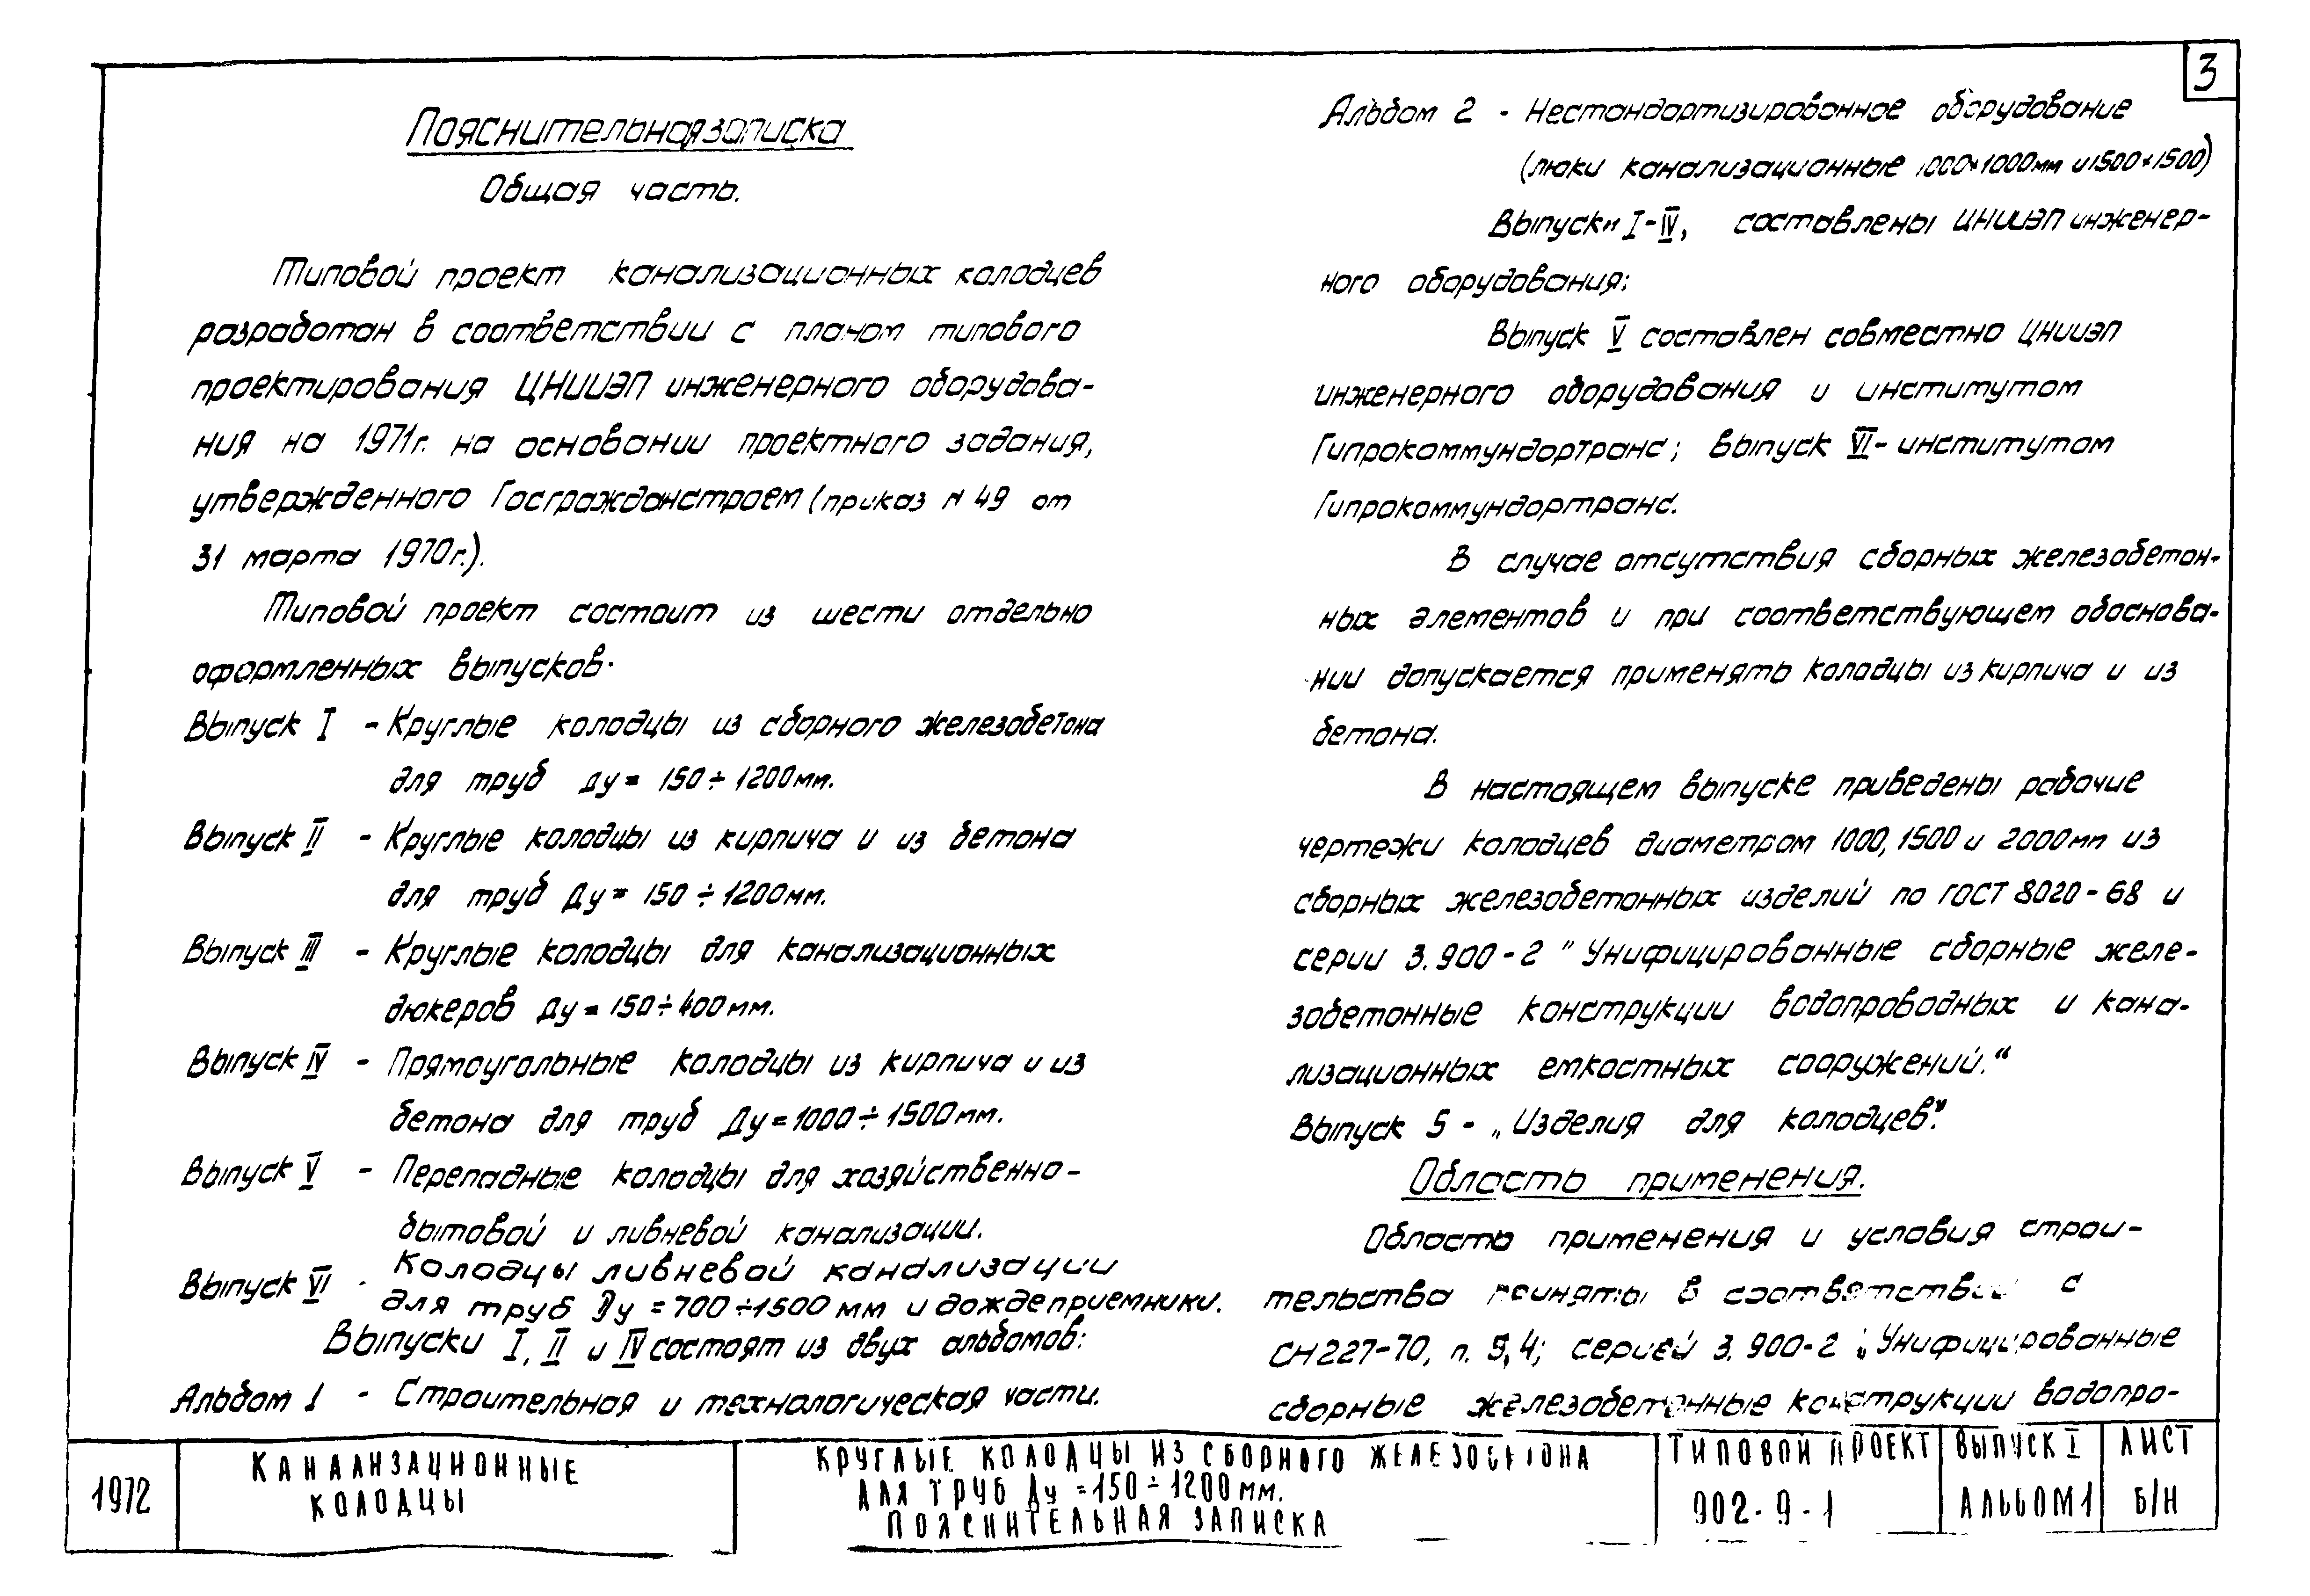 3
Пояснительная записка
Общая часть.
Типовой проект канализационных колодцев
разработан в соответствии с планом типового
проектирования ЦНИИЭП инженерного оборудова-
ния на 1971г. на основании проектного задания,
утвержденного Госгражданстроем (приказ N 49 от
31 марта 1970г.).
Типовой проект состоит из шести отдельно
оформленных выпусков.
Выпуск I - Круглые колодцы из сборного железобетона
для труб Ду = 150 ÷ 1200мм.
Выпуск II - Круглые колодцы из кирпича и из бетона
для труб Ду = 150 ÷ 1200мм.
Выпуск III - Круглые колодцы для канализационных
дюкеров Ду = 150 ÷ 400мм.
Выпуск IV - Прямоугольные колодцы из кирпича и из
бетона для труб Ду = 1000 ÷ 1500мм.
Выпуск V - Перепадные колодцы для хозяйственно-
бытовой и ливневой канализации.
Выпуск VI - Колодцы ливневой канализации
для труб Ду = 700 ÷ 1500 мм и дождеприемники.
Выпуски I, II и IV состоят из двух альбомов:
Альбом 1 - Строительная и технологическая части.
Альбом 2 - Нестандартизированное оборудование
(люки канализационные 1000×1000мм и 1500×1500)
Выпуски I-IV, составлены ЦНИИЭП инженер-
ного оборудования;
Выпуск V составлен совместно ЦНИИЭП
инженерного оборудования и институтом
Гипрокоммундортранс; выпуск VI - институтом
Гипрокоммундортранс.
В случае отсутствия сборных железобетон-
ных элементов и при соответствующем обоснова-
нии допускается применять колодцы из кирпича и из
бетона.
В настоящем выпуске приведены рабочие
чертежи колодцев диаметром 1000, 1500 и 2000мм из
сборных железобетонных изделий по ГОСТ 8020-68 и
серии 3.900-2 "Унифицированные сборные желе-
зобетонные конструкции водопроводных и кана-
лизационных емкостных сооружений."
Выпуск 5 - „Изделия для колодцев".
Область применения.
Область применения и условия строи-
тельства приняты в соответствии с
СН 227-70, п. 5,4; серией 3.900-2 „Унифицированные
сборные железобетонные конструкции водопро-
1972
КАНАЛИЗАЦИОННЫЕ
КОЛОДЦЫ
КРУГЛЫЕ КОЛОДЦЫ ИЗ СБОРНОГО ЖЕЛЕЗОБЕТОНА
ДЛЯ ТРУБ Ду = 150 ÷ 1200 мм.
ПОЯСНИТЕЛЬНАЯ ЗАПИСКА
ТИПОВОЙ ПРОЕКТ
902-9-1
ВЫПУСК I
АЛЬБОМ 1
ЛИСТ
Б/Н